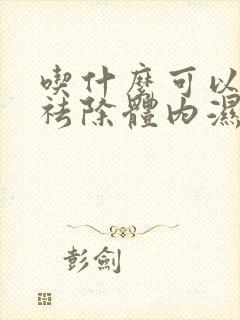 喫什麼可以
祛除體內濕
彭劍